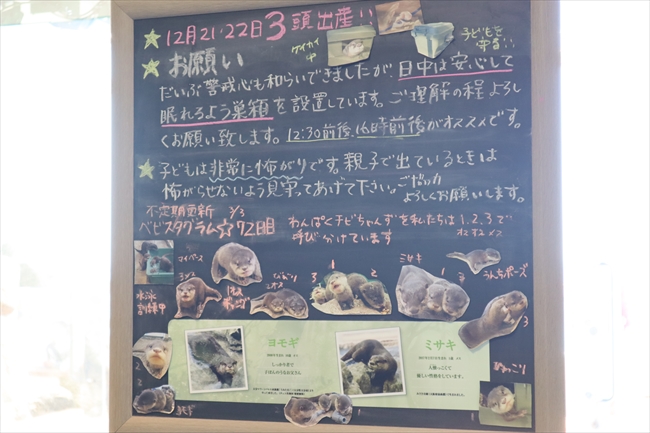 12月21・22日3頭出産!!
ケイカイ中
子どもで
お願い
だいぶ警戒心も和らいできましたが、日中は安心して
眠れるよう巣箱を設置しています。ご理解の程よろし
くお願い致します。12:30前後、16時前後がオススメです。
子どもは非常に怖がりです。親子で出ているときは
怖がらせないよう見守ってあげて下さい。ご協力
よろしくお願いします。
不定期更新 3/3
ベビスタグラム☆72日目
わんぱくチビちゃんずを私たちは1.2.3で
呼び分けています
オスオスメス
マイペース
ミサキ
うんちポーズ
3 1 2
1 2
3
水泳訓練中
ヨモギ
ミサキ
ぬっこり
2
3
ヨモギ